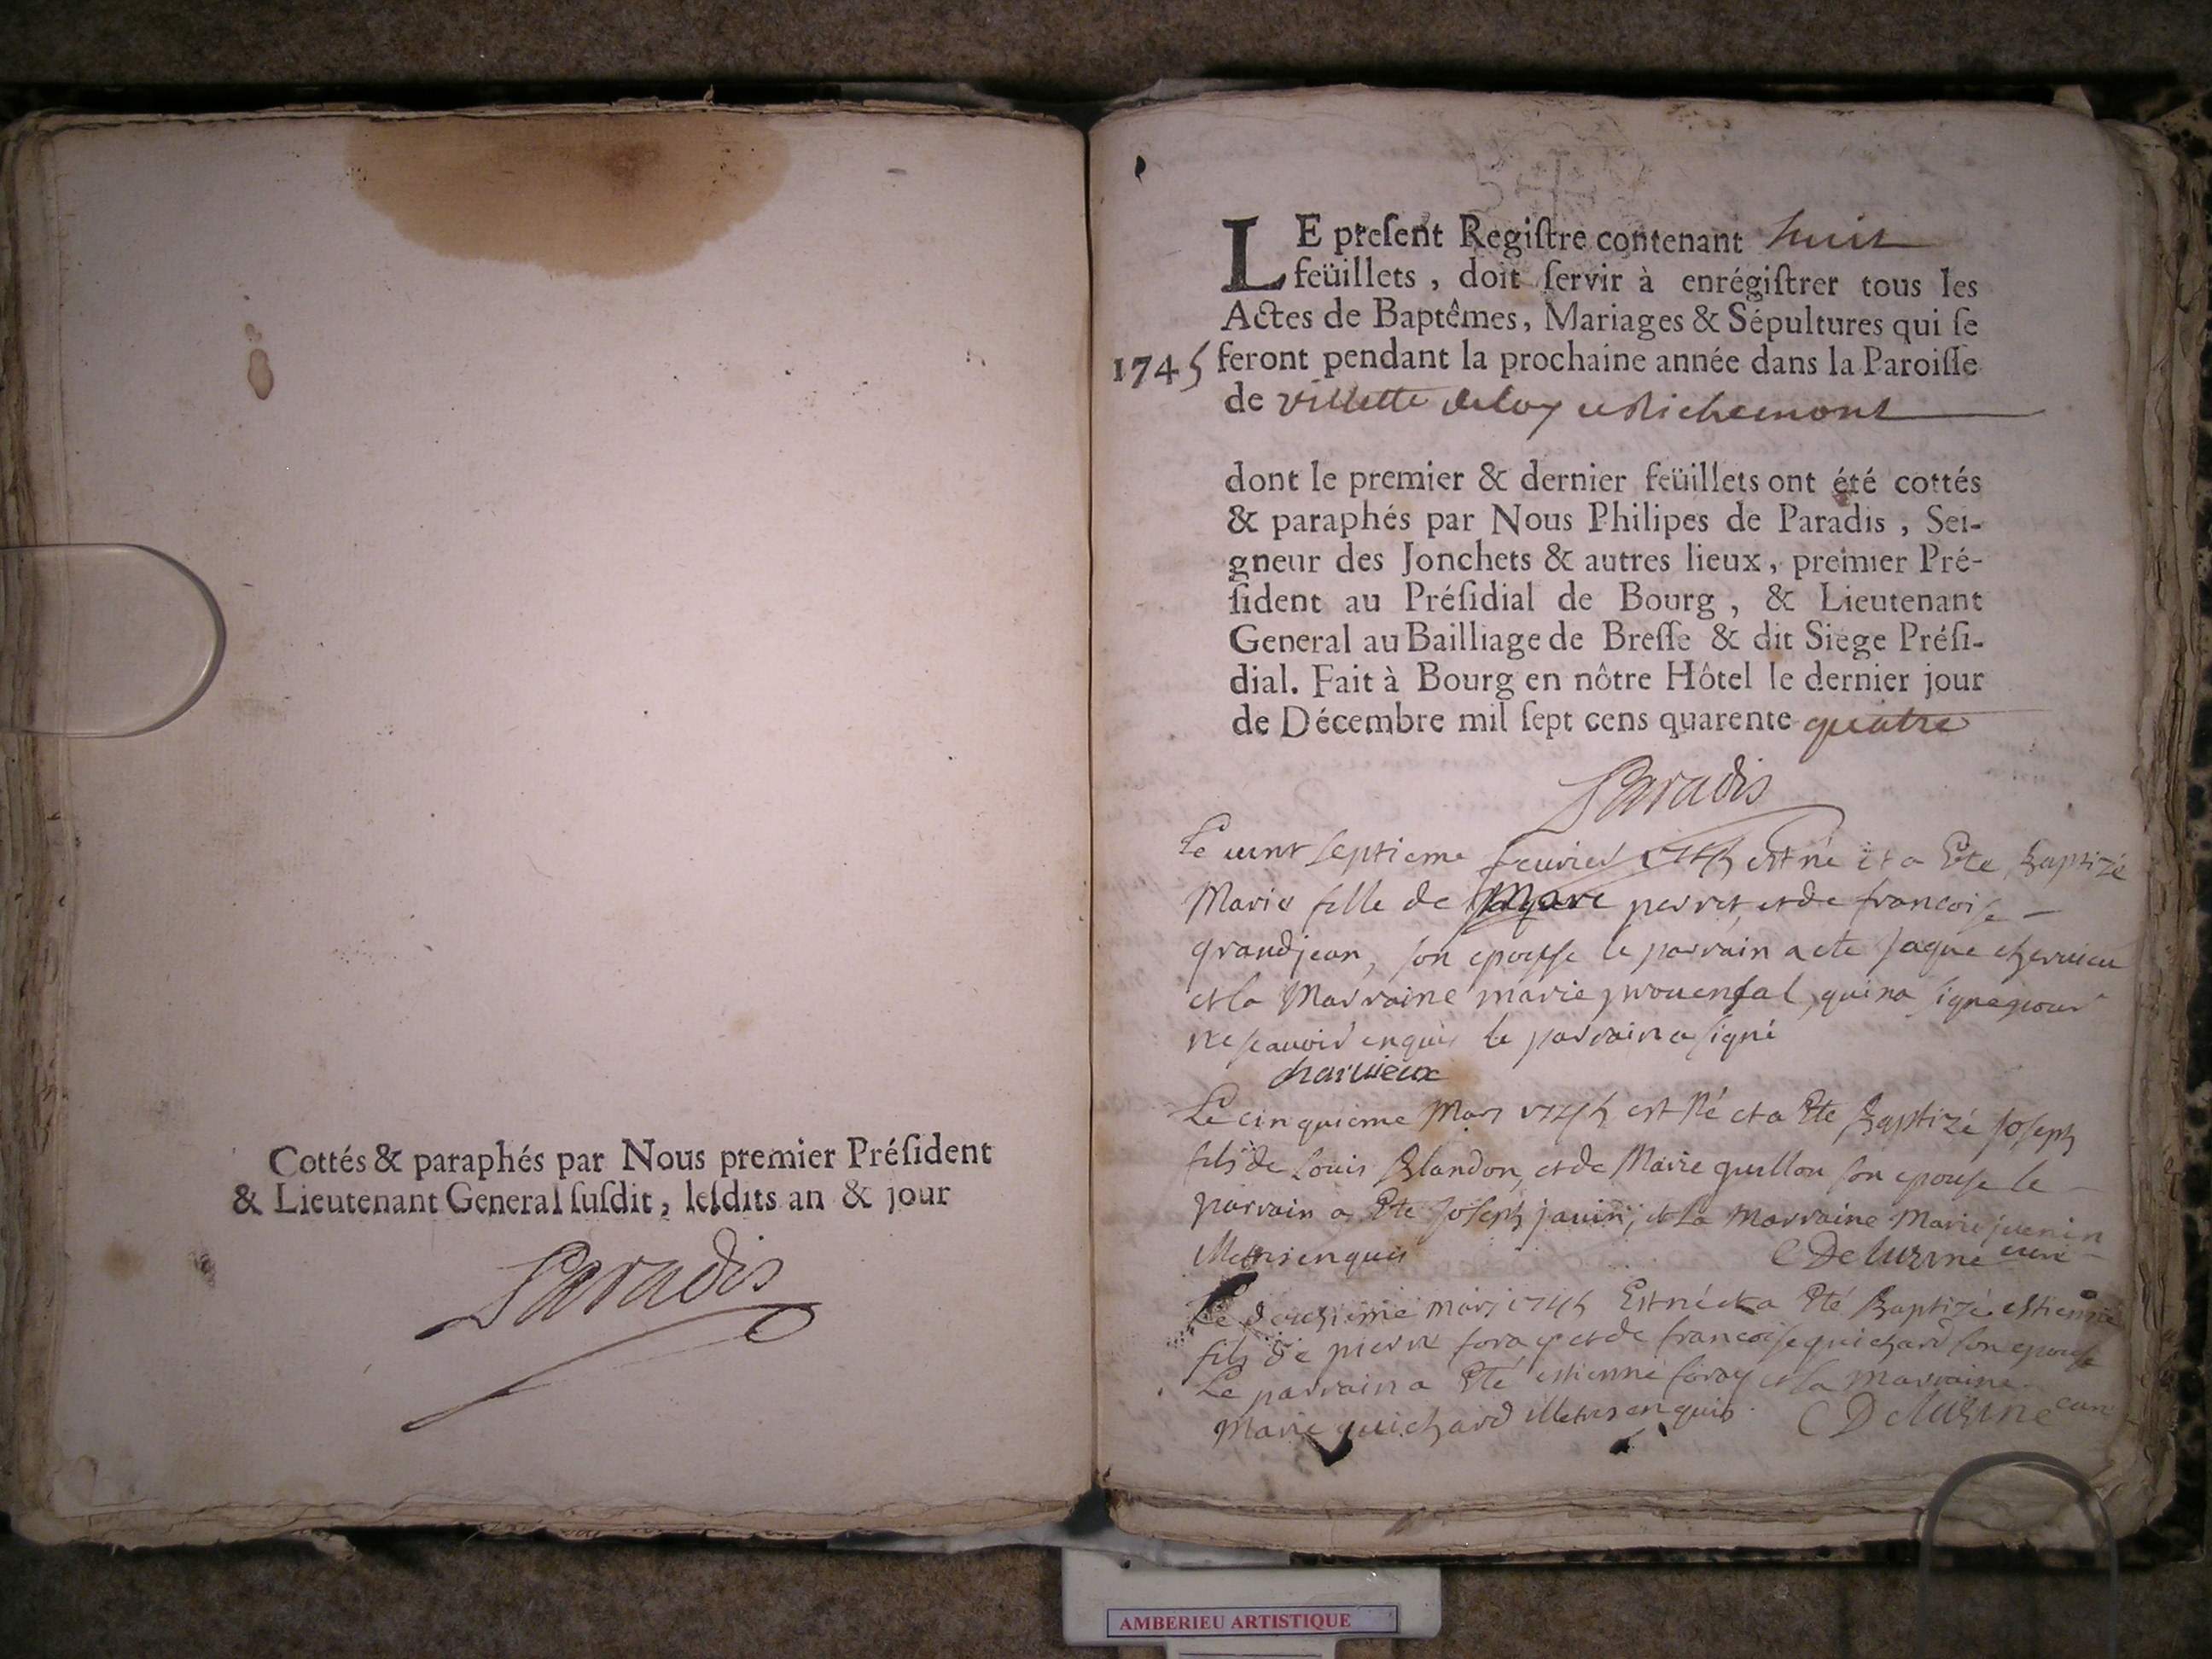 Cottés & paraphés par Nous premier Préſident
& Lieutenant General ſuſdit, leſdits an & jour
Paradis
LE preſent Regiſtre contenant huit
feüillets, doit ſervir à enrégiſtrer tous les
Actes de Baptêmes, Mariages & Sépultures qui ſe
1745 feront pendant la prochaine année dans la Paroiſſe
de villette deloy et Richemont
dont le premier & dernier feüillets ont été cottés
& paraphés par Nous Philipes de Paradis, Sei-
gneur des Jonchets & autres lieux, premier Pré-
ſident au Préſidial de Bourg, & Lieutenant
General au Bailliage de Breſſe & dit Siege Préſi-
dial. Fait à Bourg en nôtre Hôtel le dernier jour
de Décembre mil ſept cens quarente quatre
Paradis
Le vint septieme fevrier 1745 est né et a Eté Baptizé
Marie fille de Marc perret et de francoise
grandjean, son epouse le parrain a ete Jaque
et la Marraine marie provensal, qui na signe pour
ne scavoir enquis le parrain a signé
charvieux
Le cinquieme Mars 1745 est Né et a Eté Baptizé Joseph
fils de Louis Blandon, et de Marie guillon son epouse le
parrain a Eté Joseph janin, et La Marraine Marie juenin
illetrés enquis Deluzine curé
Le deuzieme mars 1745 Est né et a Eté Baptizé estienne
fils de pierre foray et de francoise guichard son epouse
Le parrain a Eté estienne foray et la marraine
Marie guichard illetrés enquis. Deluzine curé
AMBERIEU ARTISTIQUE